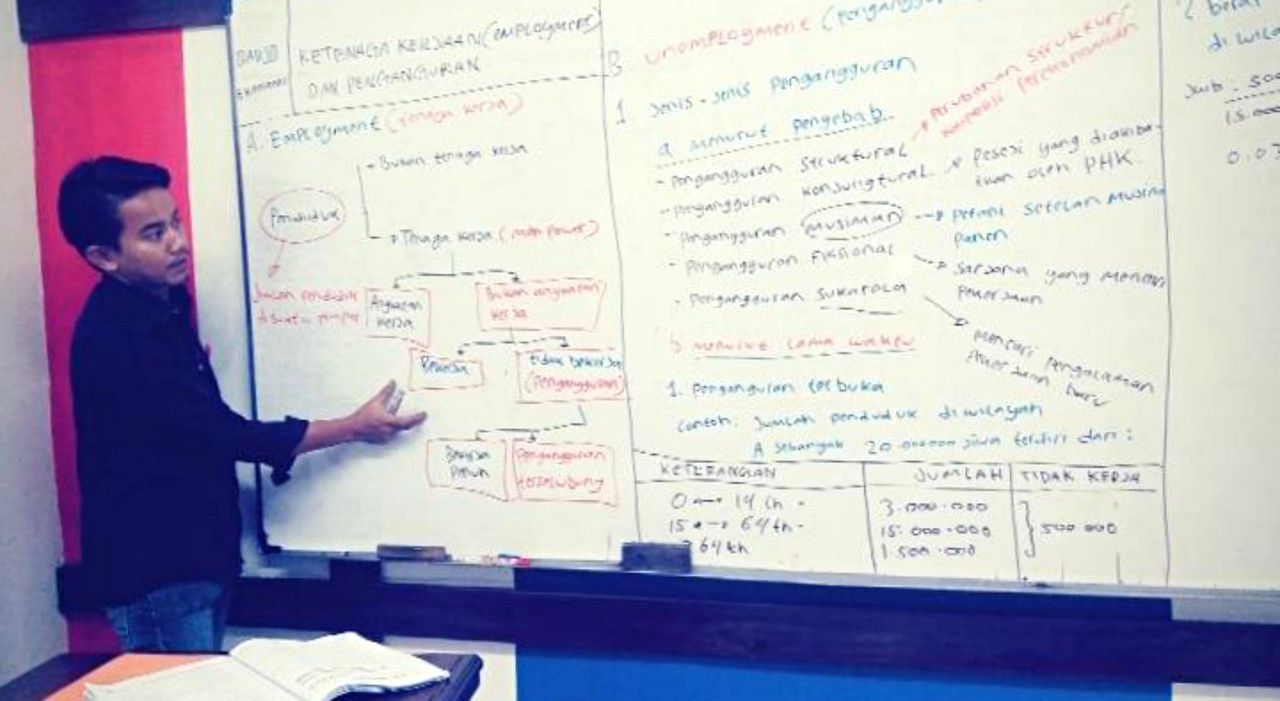 KETENAGA KERJAAN (EMPLOGMENT)
DAN PENGANGURAN
A. EMPLOGMENT (tenaga kerja)
Bukan tenaga kerja
Penduduk
Tenaga kerja (man power)
Jumlah penduduk
Angkatan
kerja
Bukan angkatan
kerja
Bekerja
tidak bekerja
(pengangguran)
Bekerja
Penuh
Pengangguran
terselubung
B. UNOMPLOGMENT
1 Jenis-Jenis Pengangguran
a menurut pengebab
- Pengangguran Struktural → Perubahan Struktur/
Komposisi Perekonomian
- Pengangguran Konjungtural → Resesi yang diakiba-
tkan oleh PHK.
- Pengangguran musiman → Petani setelah Musim
panen
- Pengangguran Fiksional → Sarjana yang mencari
Pekerjaan
- Pengangguran Sukarela → Mencari Pengalaman
Pekerjaan baru
b menurut Lama waktu
1. Penganguran terbuka
Contoh: Jumlah penduduk diwilayah
A sebanyak 20.000.000 jiwa terdiri dari:
KETERANGAN JUMLAH TIDAK KERJA
0 → 14 th - 3.000.000
15 → 64 th - 15.000.000 } 500 000
64 th 1.500.000
di
Jwb: